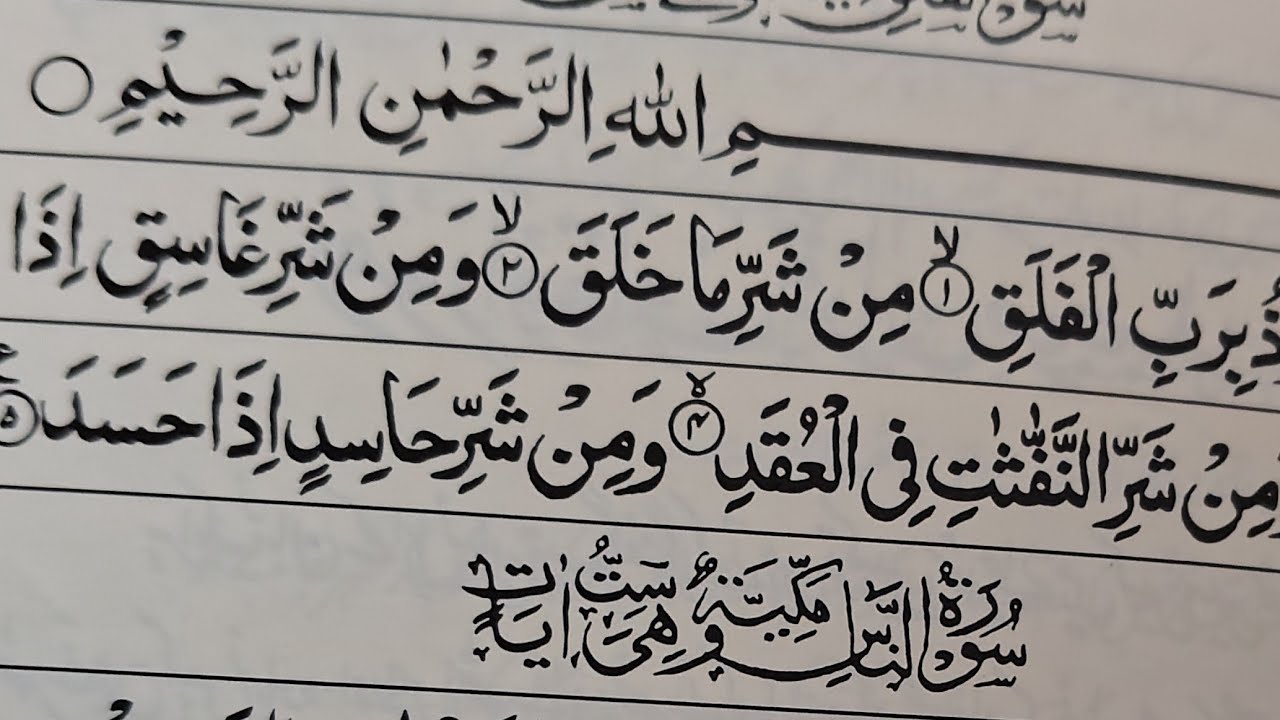 ـمِ اللهِ الرَّحْمٰنِ الرَّحِيْمِ ○
ذُ بِرَبِّ الْفَلَقِ ۙ﴿۱﴾ مِنْ شَرِّ مَا خَلَقَ ۙ﴿۲﴾ وَمِنْ شَرِّ غَاسِقٍ اِذَا
مِنْ شَرِّ النَّفّٰثٰتِ فِي الْعُقَدِ ۙ﴿۴﴾ وَمِنْ شَرِّ حَاسِدٍ اِذَا حَسَدَ ﴿۵﴾
سُوْرَةُ النَّاسِ مَكِّيَّةٌ وَّهِىَ سِتُّ اٰيَاتٍ